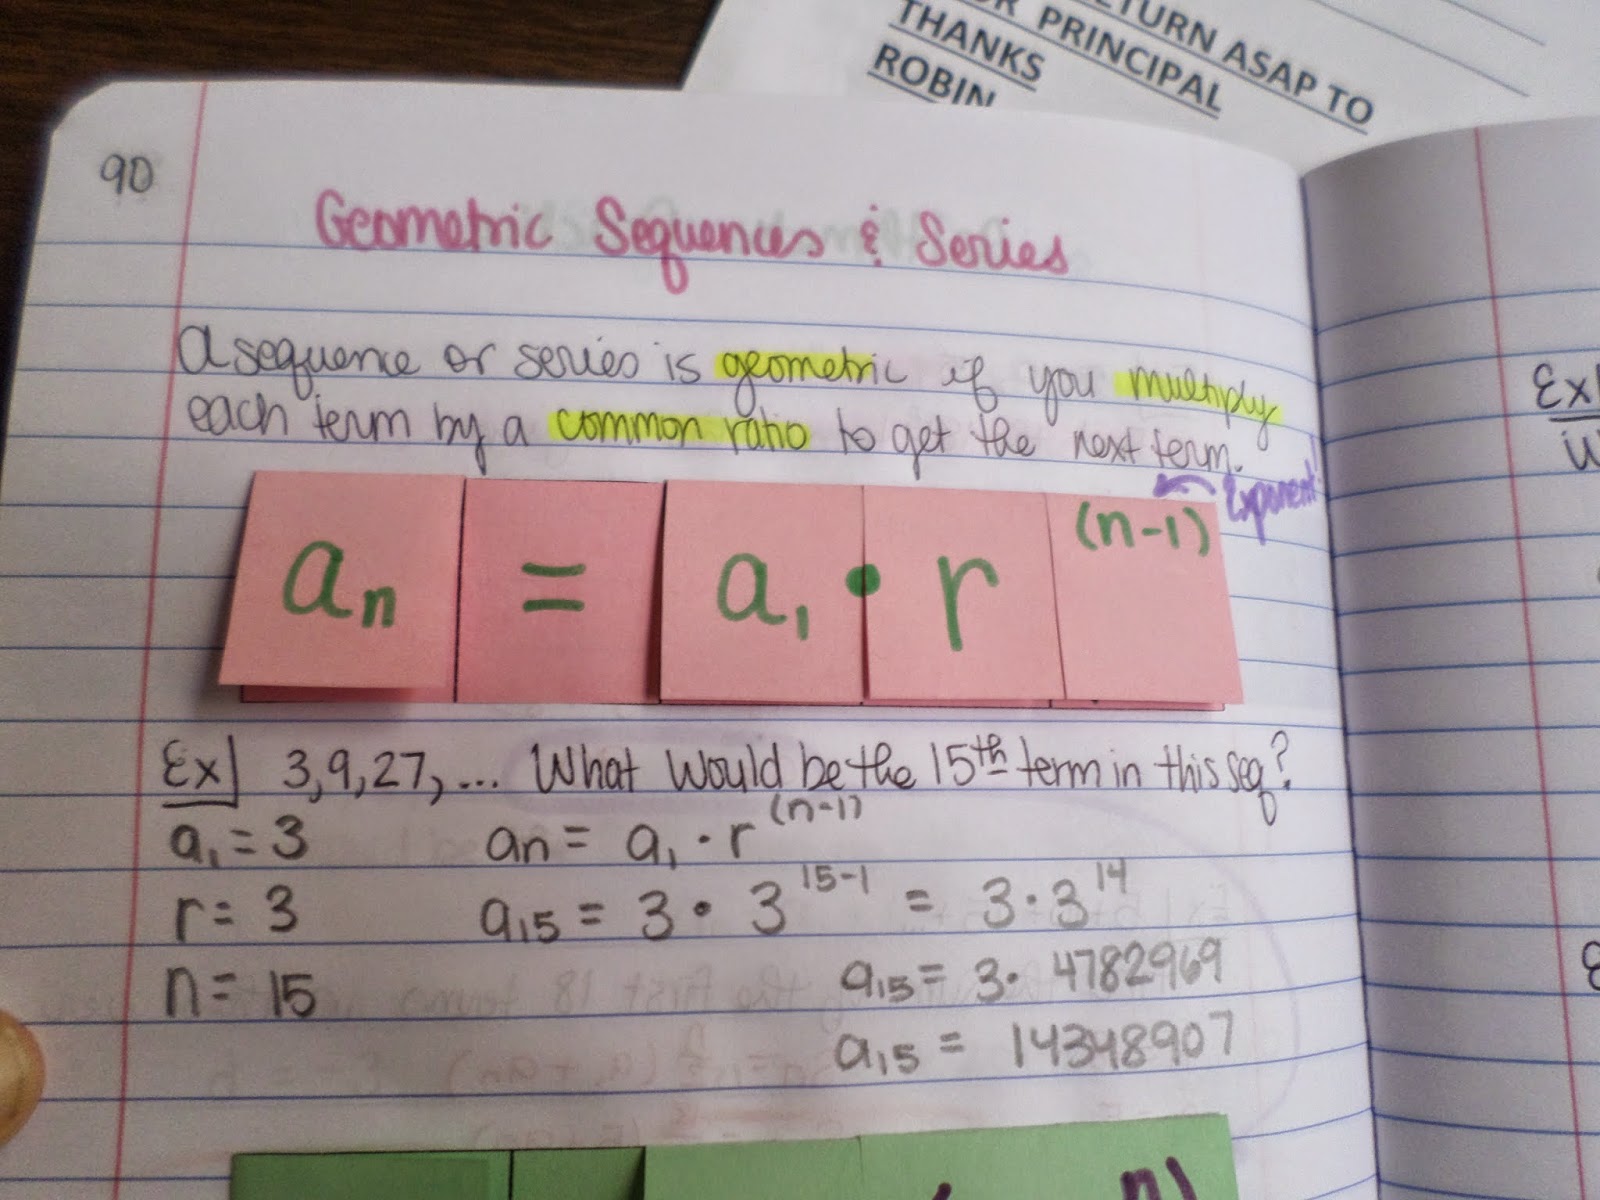 TURN ASAP TO
PRINCIPAL
THANKS
ROBIN
90
Geometric Sequences & Series
A sequence or series is geometric if you multiply
each term by a common ratio to get the next term.
Exponent
aₙ = a₁ • r⁽ⁿ⁻¹⁾
Ex] 3, 9, 27, ... What would be the 15th term in this seq?
a₁ = 3 an = a₁ · r⁽ⁿ⁻¹⁾
r = 3 a₁₅ = 3 • 3¹⁵⁻¹ = 3 · 3¹⁴
n = 15 a₁₅ = 3 · 4782969
a₁₅ = 14348907
n)
Ex